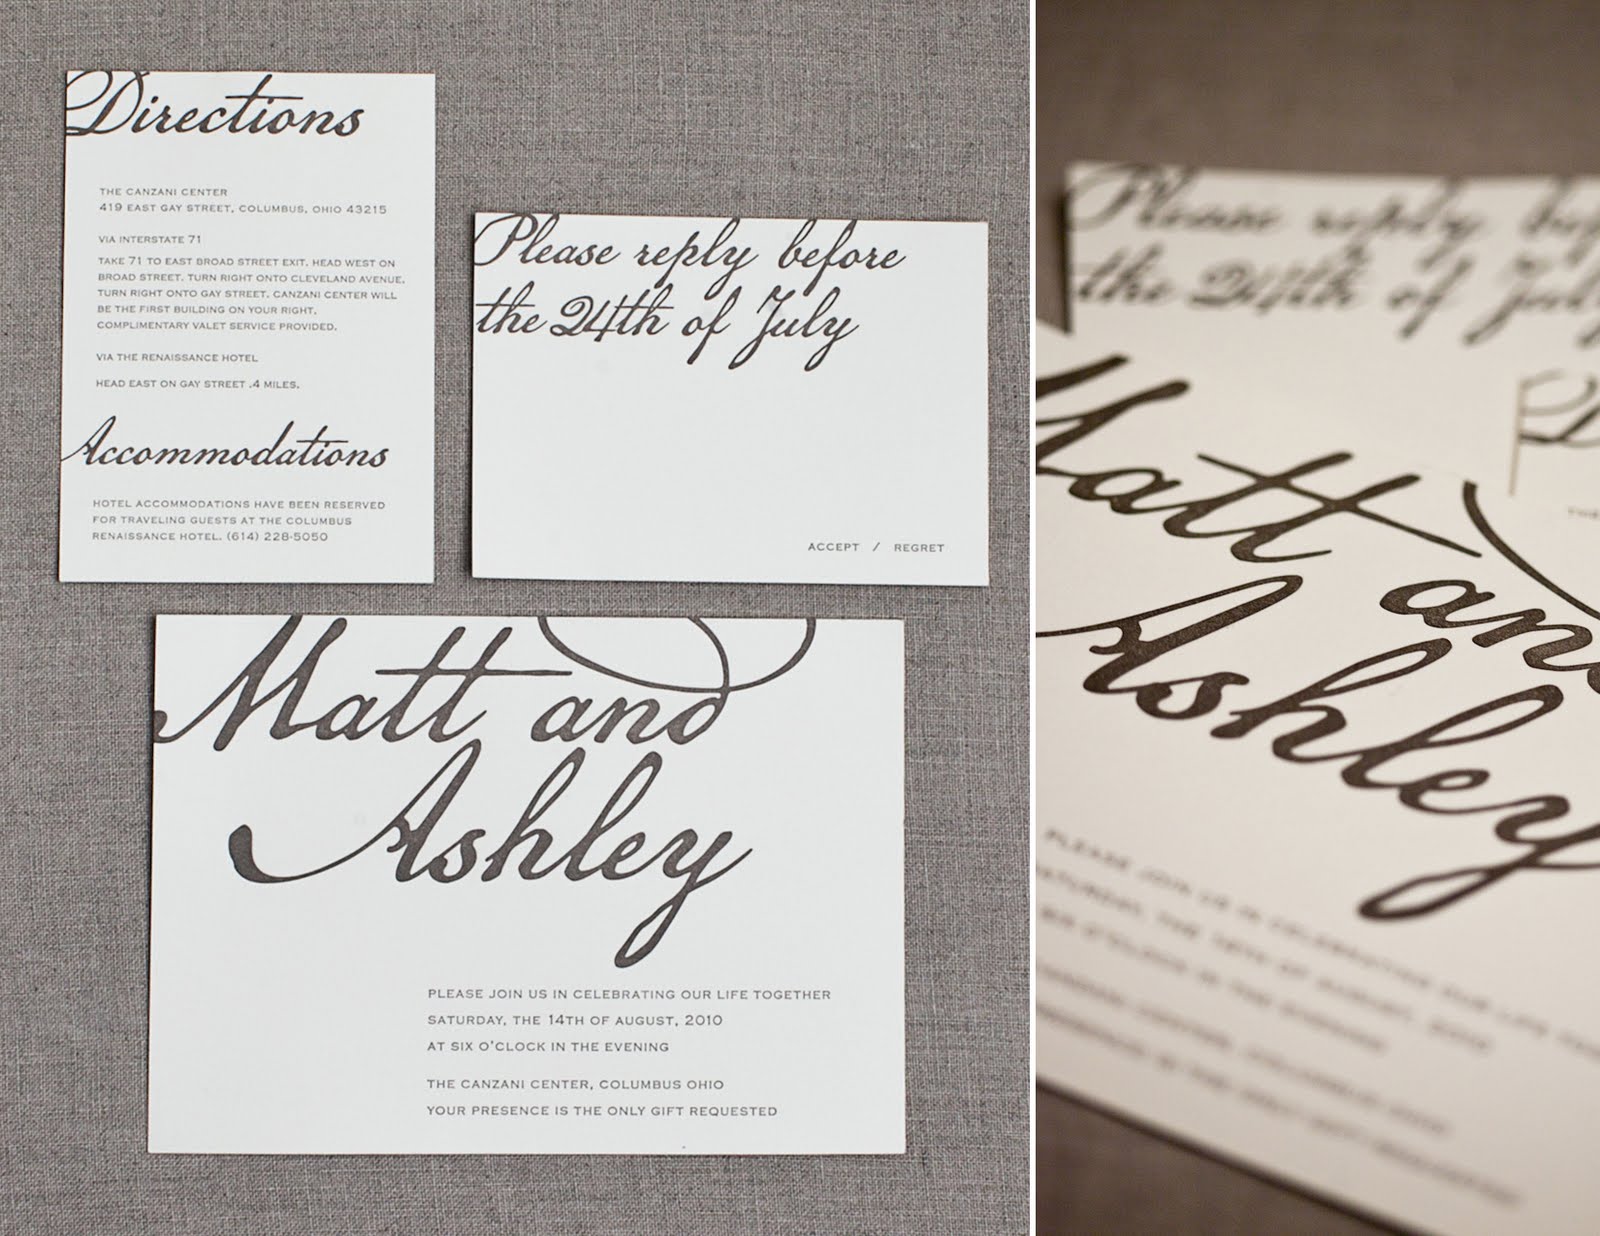 Directions
THE CANZANI CENTER
419 EAST GAY STREET, COLUMBUS, OHIO 43215
VIA INTERSTATE 71
TAKE 71 TO EAST BROAD STREET EXIT. HEAD WEST ON
BROAD STREET. TURN RIGHT ONTO CLEVELAND AVENUE.
TURN RIGHT ONTO GAY STREET. CANZANI CENTER WILL
BE THE FIRST BUILDING ON YOUR RIGHT.
COMPLIMENTARY VALET SERVICE PROVIDED.
VIA THE RENAISSANCE HOTEL
HEAD EAST ON GAY STREET .4 MILES.
Accommodations
HOTEL ACCOMMODATIONS HAVE BEEN RESERVED
FOR TRAVELING GUESTS AT THE COLUMBUS
RENAISSANCE HOTEL. (614) 228-5050
Please reply before
the 24th of July
ACCEPT / REGRET
Matt and
Ashley
PLEASE JOIN US IN CELEBRATING OUR LIFE TOGETHER
SATURDAY, THE 14TH OF AUGUST, 2010
AT SIX O'CLOCK IN THE EVENING
THE CANZANI CENTER, COLUMBUS OHIO
YOUR PRESENCE IS THE ONLY GIFT REQUESTED
Please reply bef
the 24th of July
Matt and
Ashley
PLEASE JOIN US IN CELEBRATING OUR LIFE